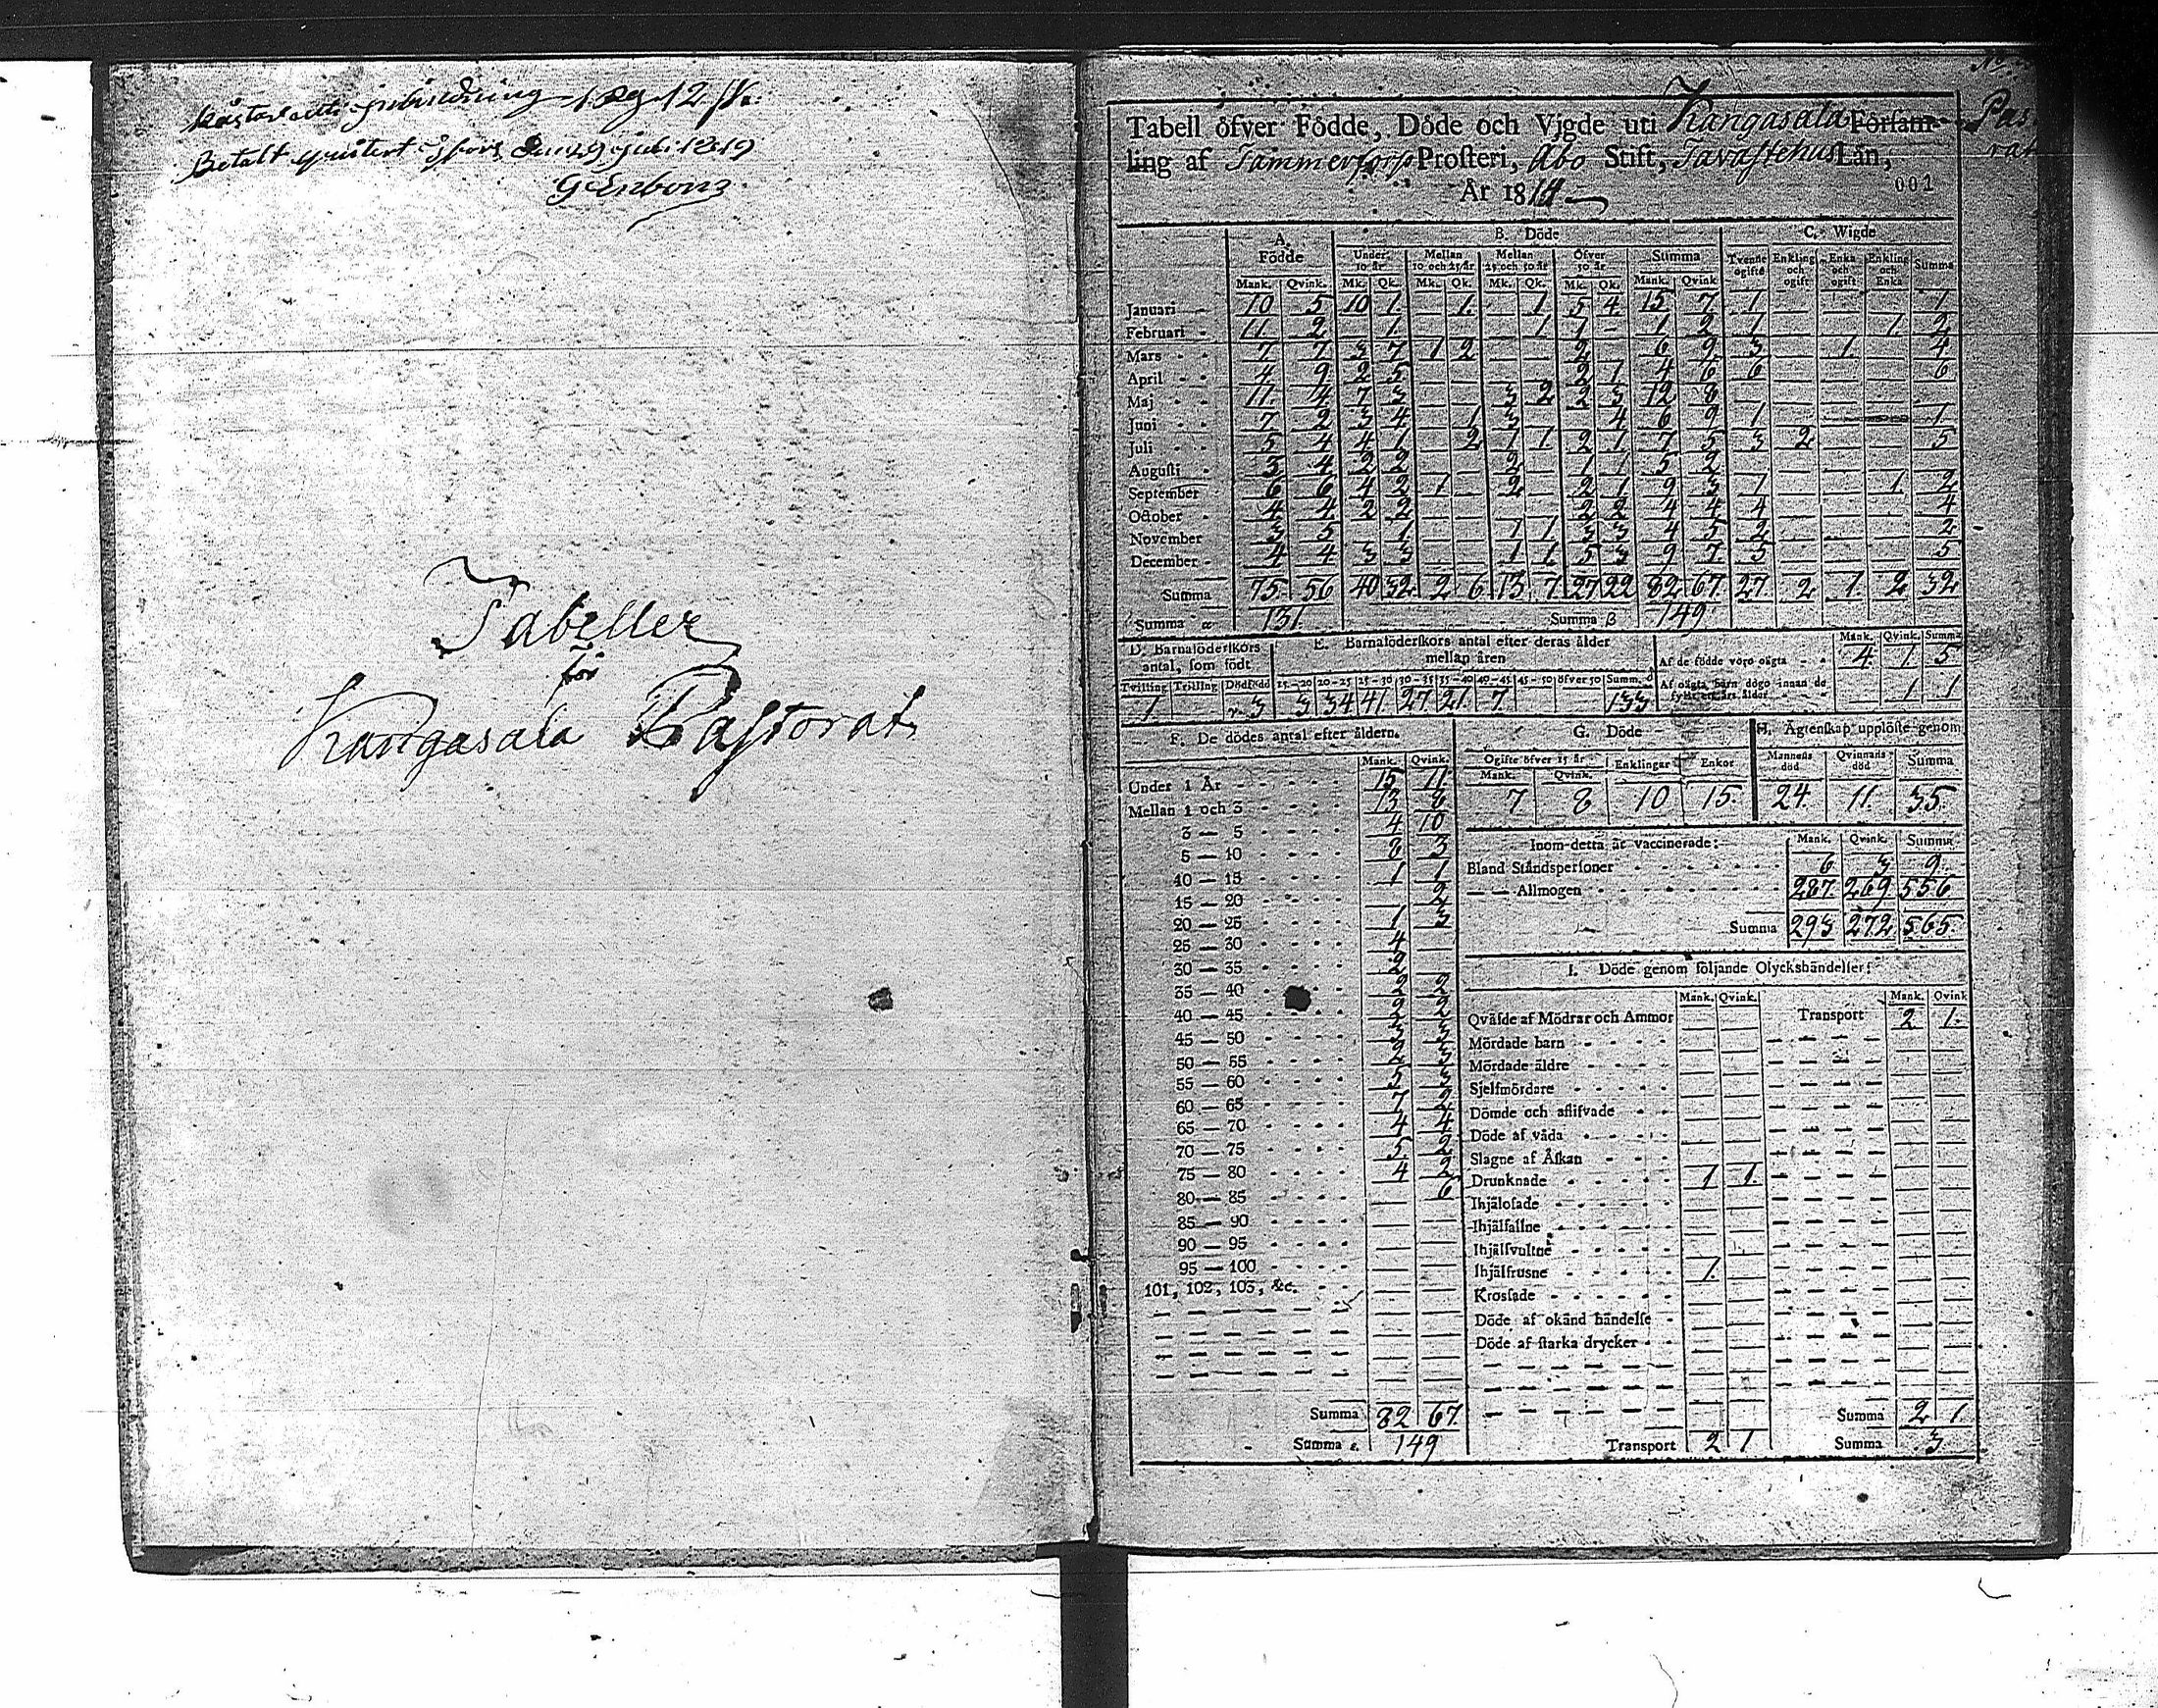 Betalt qvitert Åfors den 29 Juli 1819
Tabeller
för
Kangasala Pastorat
Tabell öfver Födde, Döde och Vigde uti Kangasala Försam-
ling af Tammerfors Prosteri, Åbo Stift, Tavastehus Län,
År 1814
001
A. Födde B. Döde C. Wigde
Under 10 år Mellan 10 och 25 år Mellan 25 och 50 år Öfver 50 år Summa Tvenne ogifte Enkling och ogift Enka och ogift Enkling och Enka Summa
Mank. Qvink. Mk. Qk. Mk. Qk. Mk. Qk. Mk. Qk. Mank. Qvink
Januari 10 5 10 1 1 1 5 4 15 7 1 1
Februari 11 2 1 1 1 1 2 1 1 2
Mars 7 7 3 7 1 2 2 6 9 3 1 4
April 4 9 2 5 2 1 4 6 6 6
Maj 11 4 7 3 3 2 2 3 12 8
Juni 7 2 3 4 1 3 4 6 9 1 1
Juli 5 4 4 1 2 1 1 2 1 7 5 3 2 5
Augusti 3 4 2 2 2 1 5 2
September 6 6 4 2 1 2 2 1 9 3 1 1 2
October 4 4 2 2 2 2 4 4 4 4
November 3 5 1 1 1 3 3 4 5 2 2
December 4 4 3 3 1 1 5 3 9 7 5 5
Summa 75 56 40 32 2 6 13 7 27 22 82 67 27 2 1 2 32
Summa α 131 Summa β 149
D. Barnaföderskors antal, som födt
Tvilling Trilling Dödfödd
1 3
E. Barnaföderskors antal efter deras ålder mellan åren
15-20 20-25 25-30 30-35 35-40 40-45 45-50 öfver 50 Summ. δ
3 34 41 27 21 7 133
Mank. Qvink. Summa
Af de födde voro oägta 4 1 5
Af oägta barn dögo innan de fyllt ett års ålder 1 1
F. De dödes antal efter åldern.
Mank. Qvink.
Under 1 År 15 11
Mellan 1 och 3 13 8
3 — 5 4 10
5 — 10 8 3
10 — 15 1 1
15 — 20 2
20 — 25 1 3
25 — 30 4
30 — 35 2
35 — 40 2 2
40 — 45 2 2
45 — 50 3 3
50 — 55 2 3
55 — 60 5 3
60 — 65 7 2
65 — 70 4 4
70 — 75 5 2
75 — 80 4 2
80 — 85 6
85 — 90
90 — 95
95 — 100
101, 102, 103, &c.
Summa 82 67
Summa ε. 149
G. Döde
Ogifte öfver 15 år Enklingar Enkor
Mank. Qvink.
7 8 10 15
H. Ägtenskap upplöste genom
Mannens död Qvinnans död Summa
24 11 35
Inom detta år vaccinerade: Mank. Qvink. Summa
Bland Ståndspersoner 6 3 9
— — Allmogen 287 269 556
Summa 293 272 565
I. Döde genom följande Olyckshändelser:
Mank. Qvink. Mank. Qvink
Qväfde af Mödrar och Ammor Transport 2 1
Mördade barn
Mördade äldre
Sjelfmördare
Dömde och aflifvade
Döde af våda
Slagne af Åskan
Drunknade 1 1
Ihjälosade
Ihjälfallne
Ihjälsvultne
Ihjälfrusne 1
Krossade
Döde af okänd händelse
Döde af starka drycker
Summa 2 1
Transport 2 1 Summa 3